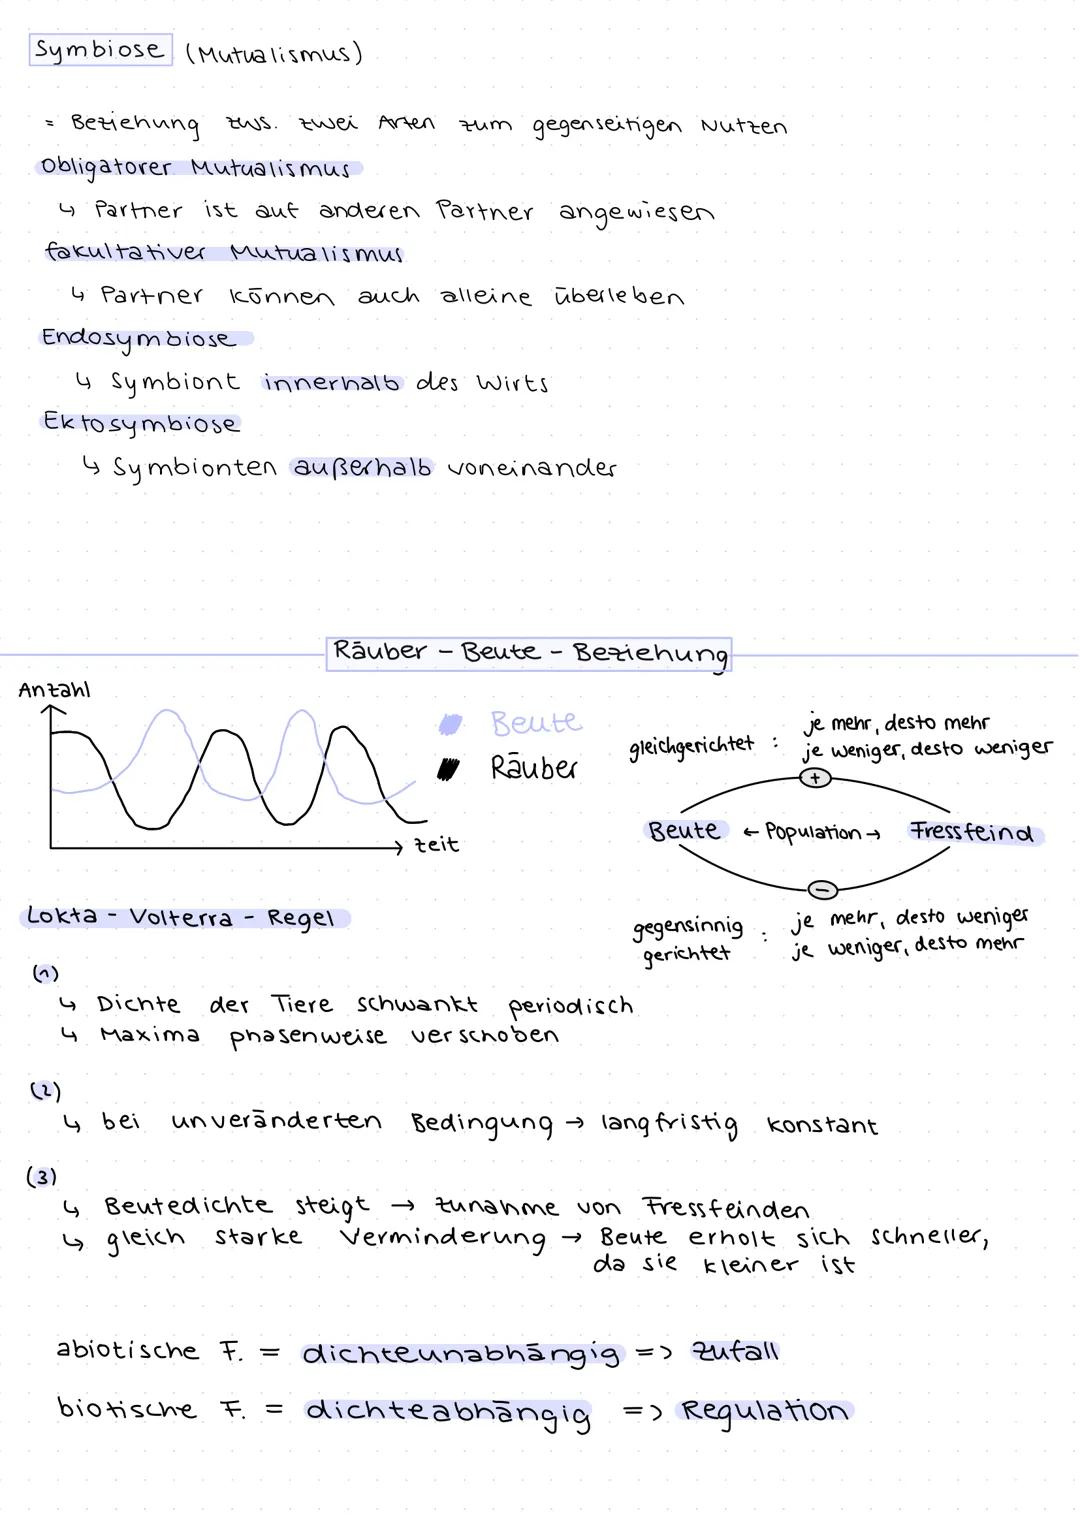 Symbiose (Mutualismus)
= Beziehung zws. zwei Arten zum gegenseitigen Nutzen
Obligatorer Mutualismus
↳ Partner ist auf anderen Partner angewiesen
fakultativer Mutualismus
↳ Partner können auch alleine überleben
Endosymbiose
↳ Symbiont innerhalb des Wirts
Ektosymbiose
↳ Symbionten außerhalb voneinander
Räuber - Beute - Beziehung
Anzahl
Beute
Räuber
zeit
gleichgerichtet : je mehr, desto mehr
je weniger, desto weniger
+
Beute ← Population → Fressfeind
−
gegensinnig gerichtet : je mehr, desto weniger
je weniger, desto mehr
Lokta - Volterra - Regel
(1)
↳ Dichte der Tiere schwankt periodisch
↳ Maxima phasenweise verschoben
(2)
↳ bei unveränderten Bedingung → langfristig konstant
(3)
↳ Beutedichte steigt → zunahme von Fressfeinden
↳ gleich starke Verminderung → Beute erholt sich schneller,
da sie kleiner ist
abiotische F. = dichteunabhängig => Zufall
biotische F. = dichteabhängig => Regulation